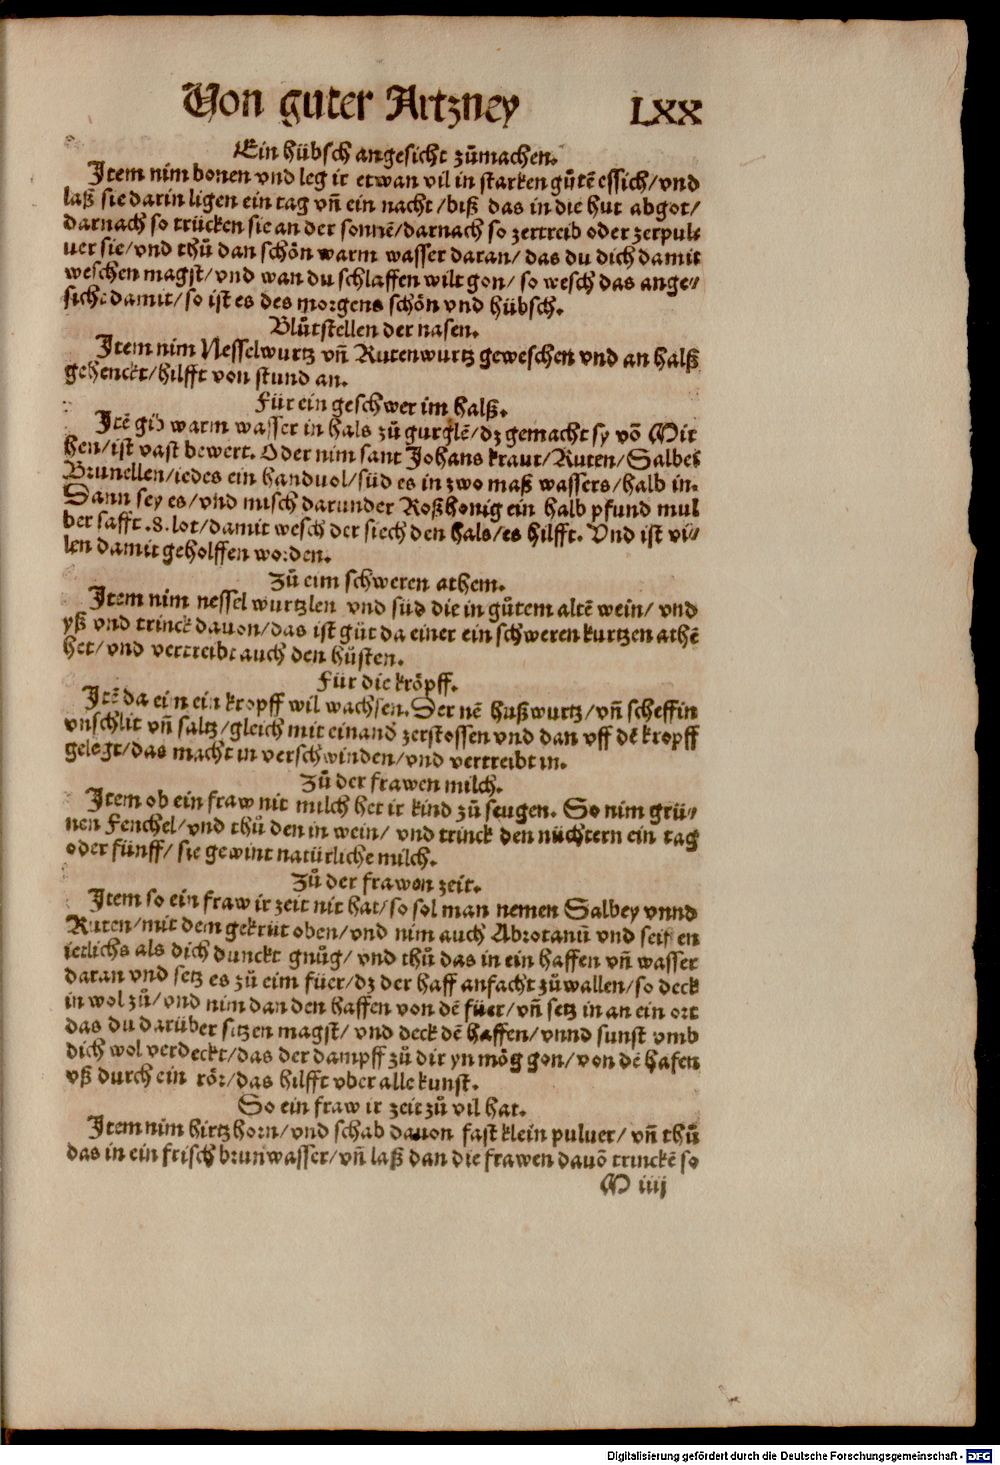 Von guter Artzney LXX
Ein hübsch angesicht zůmachen.
Item nim bonen vnd leg ir etwan vil in starken gůtē essich/vnd
laß sie darin ligen ein tag vn̄ ein nacht/biß das in die hut abgot/
darnach so trücken sie an der sonnē/darnach so zertreib oder zerpul-
uer sie/vnd thů dan schön warm wasser daran/das du dich damit
weschen magst/vnd wan du schlaffen wilt gon/so wesch das ange-
sicht damit/so ist es des morgens schön vnd hübsch.
Blůtstellen der nasen.
Item nim Nesselwurtz vn̄ Rutenwurtz geweschen vnd an halß
gehenckt/hilfft von stund an.
Für ein geschwer im halß.
Itē gib warm wasser in hals zů gurglē/dz gemacht sy vō Mir
hen/ist vast bewert. Oder nim sant Johans kraut/Ruten/Salbei
Brunellen/iedes ein handuol/süd es in zwo maß wassers/halb in.
Dann sey es/vnd misch darunder Roßhonig ein halb pfund mul
ber safft .8. lot/damit wesch der siech den hals/es hilfft. Vnd ist vi-
len damit geholffen worden.
Zů eim schweren athem.
Item nim nessel wurtzlen vnd süd die in gůtem altē wein/vnd
yß vnd trinck dauon/das ist gůt da einer ein schweren kurtzen athē
het/vnd vertreibt auch den hůsten.
Für die kröpff.
Itē da ein ein kropff wil wachsen. Der nē hußwurtz/vn̄ scheffin
vnschlit vn̄ saltz/gleich mit einand zerstossen vnd dan vff dē kropff
gelegt/das macht in verschwinden/vnd vertreibt in.
Zů der frawen milch.
Item ob ein fraw nit milch het ir kind zů seugen. So nim grü-
nen Fenchel/vnd thů den in wein/vnd trinck den nüchtern ein tag
oder fünff/sie gewint natürliche milch.
Zů der frawen zeit.
Item so ein fraw ir zeit nit hat/so sol man nemen Salbey vnnd
Ruten/mit dem gekrüt oben/vnd nim auch Abrotanū vnd seif en
ietlichs als dich dunckt gnůg/vnd thů das in ein haffen vn̄ wasser
daran vnd setz es zů eim füer/dz der haff anfacht zů wallen/so deck
in wol zů/vnd nim dan den haffen von dē füer/vn̄ setz in an ein ort
das du darüber sitzen magst/vnd deck dē haffen/vnnd sunst vmb
dich wol verdeckt/das der dampff zů dir yn mög gon/von dē hafen
vß durch ein rör/das hilfft vber alle kunst.
So ein fraw ir zeit zů vil hat.
Item nim hirtzhorn/vnd schab dauon fast klein puluer/vn̄ thů
das in ein frisch brunwasser/vn̄ laß dan die frawen dauō trinckē so
M iiij
Digitalisierung gefördert durch die Deutsche Forschungsgemeinschaft - DFG